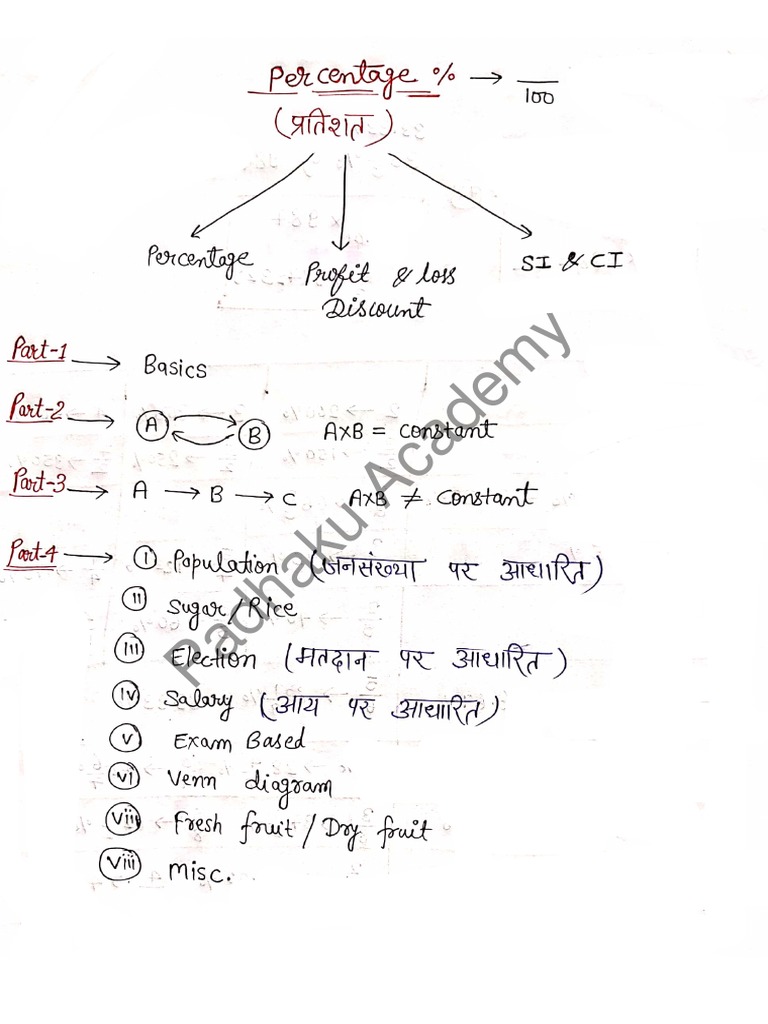 Percentage % → —/100
(प्रतिशत)
Percentage
Profit & loss
Discount
SI & CI
Part-1 → Basics
Part-2 → A B AxB = constant
Part-3 → A → B → C AxB ≠ constant
Part-4 → (i) Population (जनसंख्या पर आधारित)
(ii) Sugar/Rice
(iii) Election (मतदान पर आधारित)
(iv) Salary (आय पर आधारित)
(v) Exam Based
(vi) Venn diagram
(vii) Fresh fruit / Dry fruit
(viii) misc.
Padhaku Academy